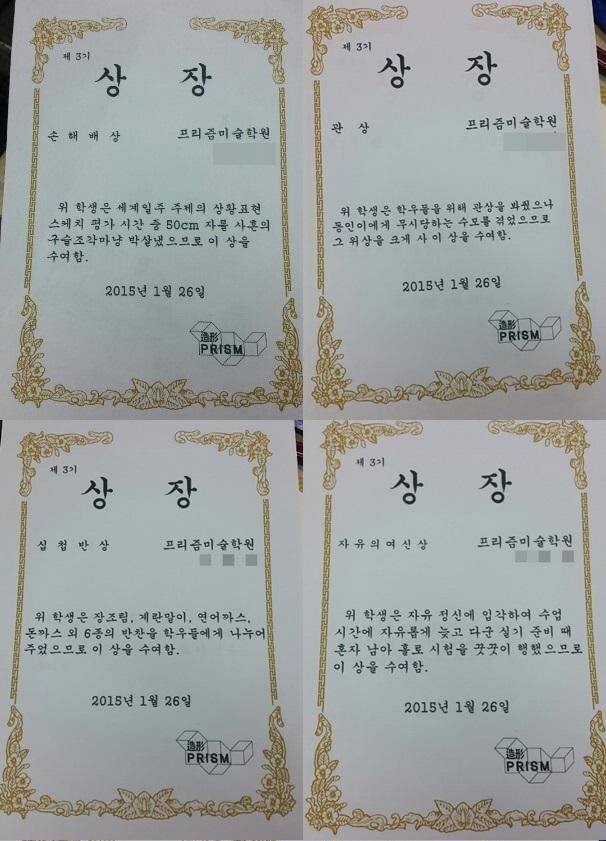 제 3기
상 장
손 해 배 상 프리즘미술학원
위 학생은 세계일주 주제의 상황표현
스케치 평가 시간 중 50cm 자를 사혼의
구슬조각마냥 박살냈으므로 이 상을
수여함.
2015년 1월 26일
造形
PRISM
제 3기
상 장
관 상 프리즘미술학원
위 학생은 학우들을 위해 관상을 봐줬으나
동인이에게 무시당하는 수모를 겪었으므로
그 위상을 크게 사 이 상을 수여함.
2015년 1월 26일
造形
PRISM
제 3기
상 장
십 첩 반 상 프리즘미술학원
위 학생은 장조림, 계란말이, 연어까스,
돈까스 외 6종의 반찬을 학우들에게 나누어
주었으므로 이 상을 수여함.
2015년 1월 26일
造形
PRISM
제 3기
상 장
자유의여신상 프리즘미술학원
위 학생은 자유 정신에 입각하여 수업
시간에 자유롭게 늦고 다군 실기 준비 때
혼자 남아 홀로 시험을 꿋꿋이 행했으므로
이 상을 수여함.
2015년 1월 26일
造形
PRISM